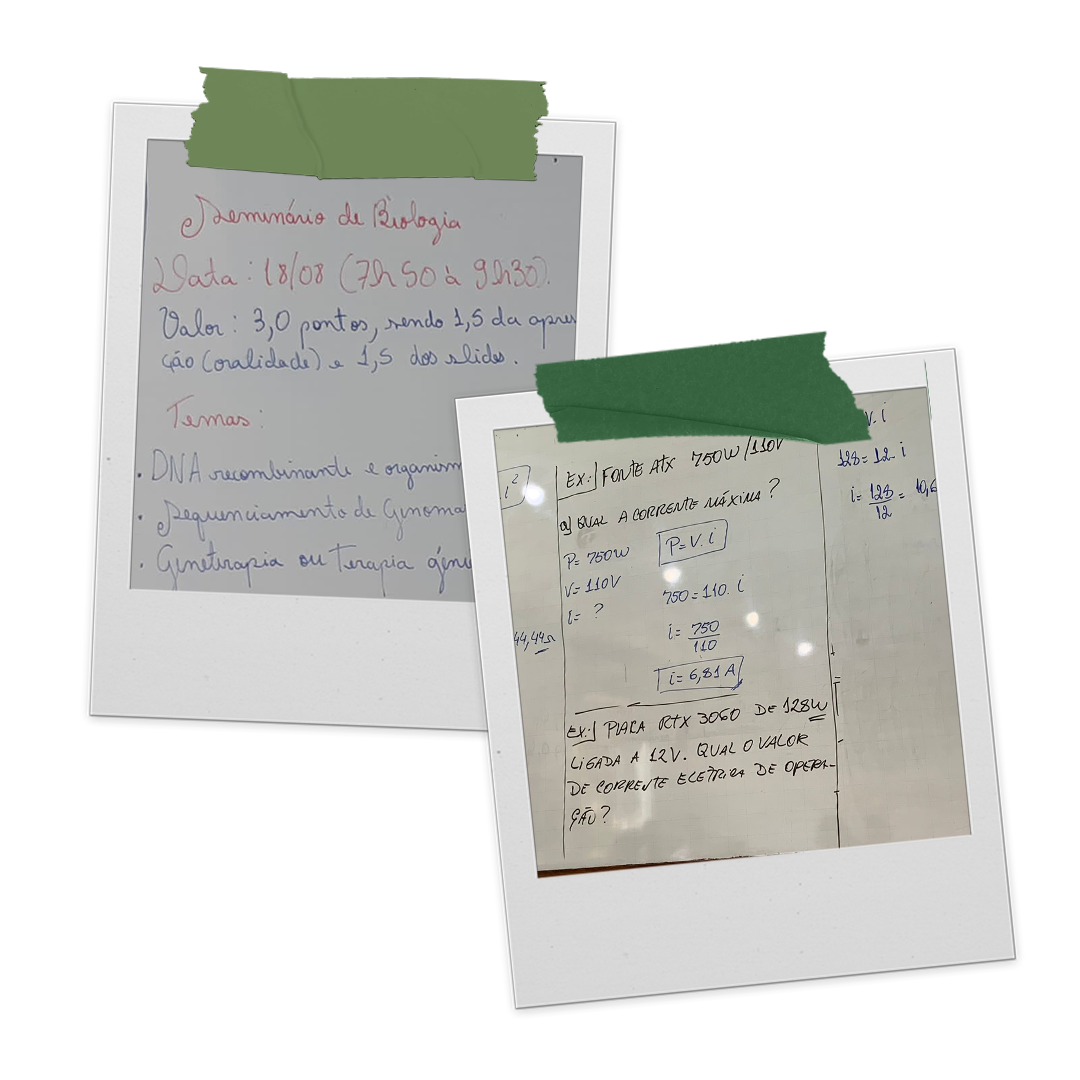 Seminário de Biologia
Data: 18/08 (7h50 à 9h30).
Valor: 3,0 pontos, sendo 1,5 da apres
ção (oralidade) e 1,5 dos slides.
Temas:
• DNA recombinante e organism
• Sequenciamento de Genoma
• Genetirapia ou Terapia gêni
i²
44,44Ω
EX: FONTE ATX 750W/110V
a) QUAL A CORRENTE MÁXIMA?
P= 750W
P=V.i
V= 110V
750=110.i
i= ?
i= 750
110
i= 6,81A
EX: PLACA RTX 3060 DE 128W
LIGADA A 12V. QUAL O VALOR
DE CORRENTE ELÉTRICA DE OPERA-
ÇÃO?
V.i
128=12.i
i= 128 = 10,6
12